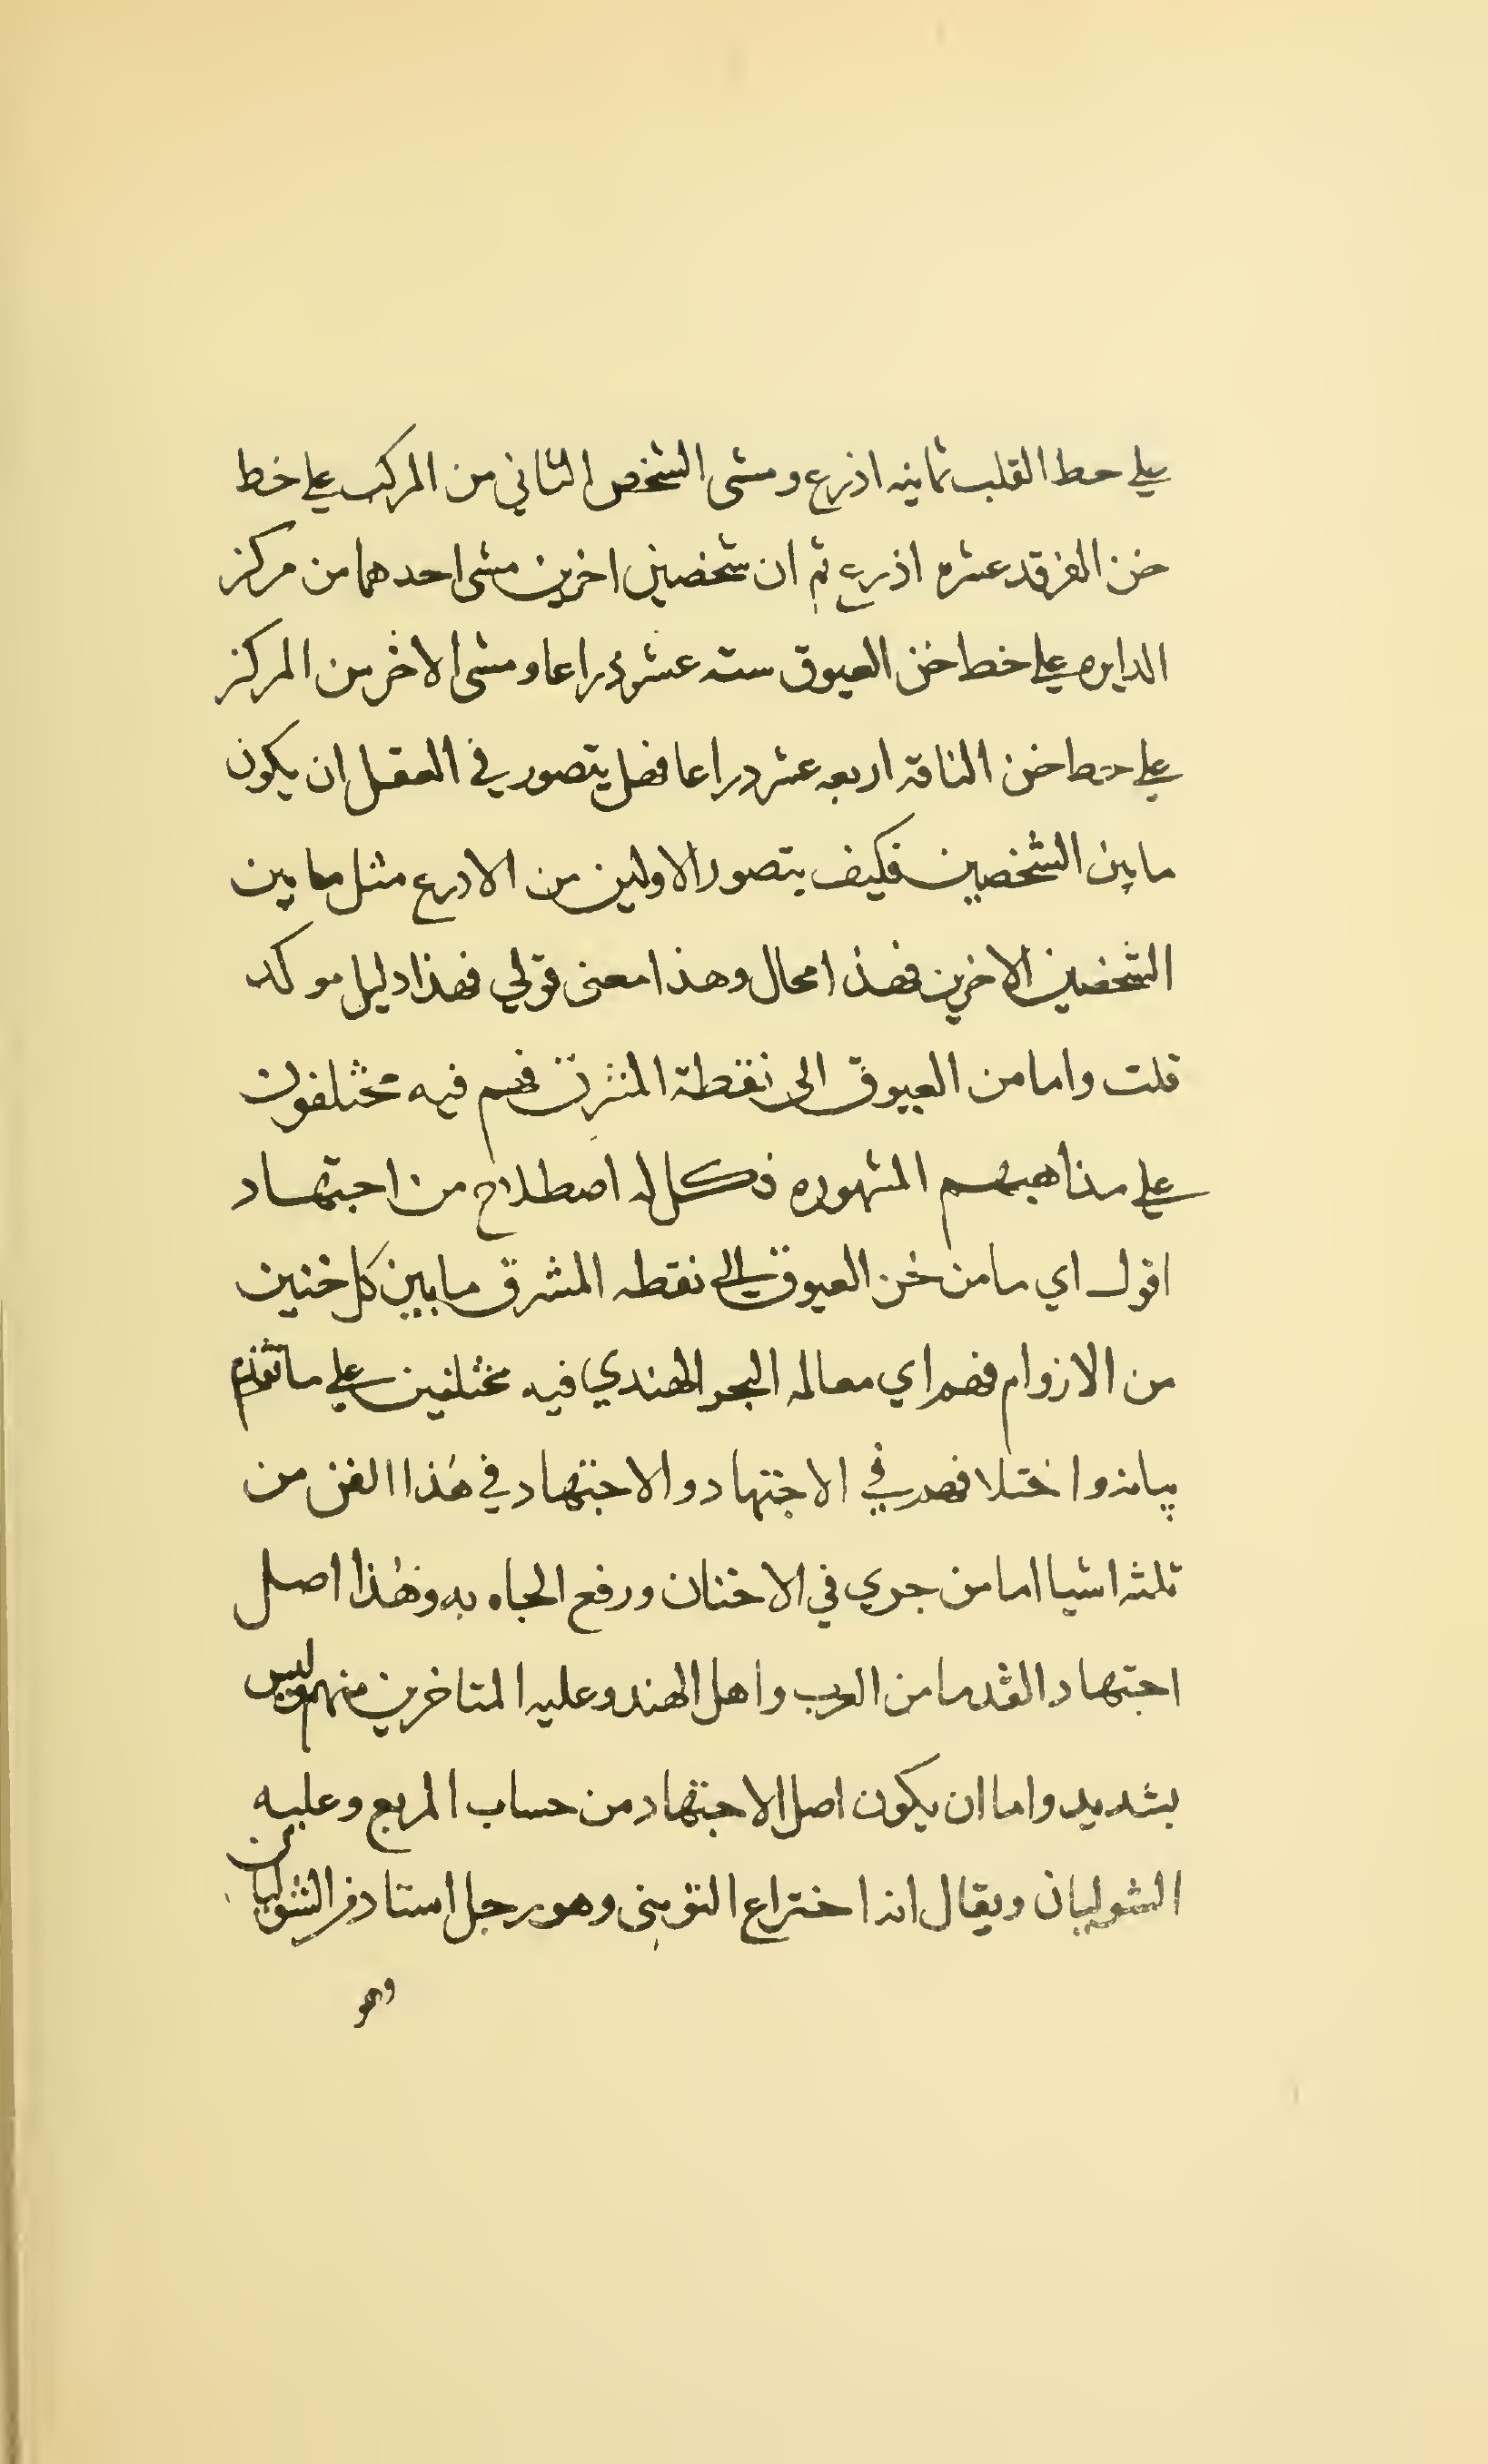 علي حط القلب ثمانيه اذرع ومشى الشخص الثاني من المركب علي خط
خن الفرقد عشره اذرع ثم ان شخصين اخرين مشى احدهما من مركز
الدايره علي خط خن العيوق سته عشر دراعا ومشى الاخر من المركز
علي حط خن الناقه اربعه عشر دراعا فهل يتصور في العقل ان يكون
ما بين الشخصين فكيف يتصور الاولين من الادرع مثل ما بين
الشخصين الاخرين فهذا محال وهذا معنى قولي فهذا دليل موكد
قلت واما من العيوق الى نقطة المشرق فهم فيه مختلفون
علي مذاهبهم المشهوره فكل له اصطلاح من اجتهاد
اقول اي ما من خن العيوق الي نقطه المشرق ما بين كل خنين
من الازوام فهم اي معالمه البحر الهندي فيه مختلفين علي ما تقدم
بيانه واختلافهم في الاجتهاد والاجتهاد في هذا الفن من
ثلثه اشيا اما من جري في الاخنان ورفع الجاه به وهذا اصل
اجتهاد القدما من العرب واهل الهند وعليه المتاخرين منهم وليس
بشديد واما ان يكون اصل الاجتهاد من حساب المربع وعليه
الشوليان ويقال انه اختراع التوبني وهو رجل استاد من الشوليان
وهو